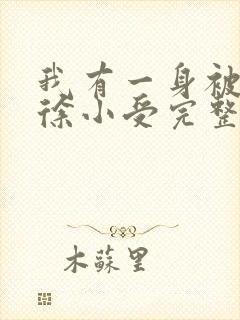 我有一身被
徐小受完整
木苏里